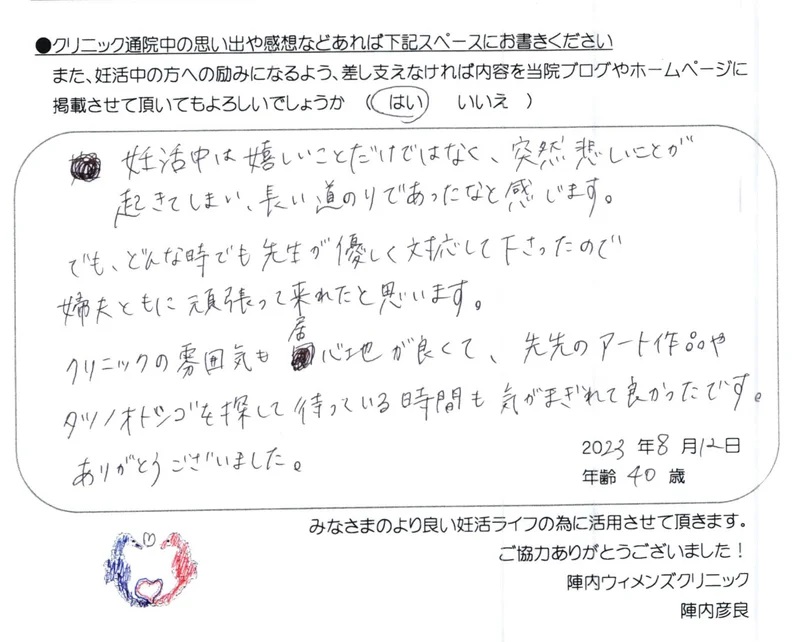 ●クリニック通院中の思い出や感想などあれば下記スペースにお書きください
また、妊活中の方への励みになるよう、差し支えなければ内容を当院ブログやホームページに
掲載させて頂いてもよろしいでしょうか ( はい いいえ )
妊活中は嬉しいことだけではなく、突然悲しいことが
起きてしまい、長い道のりであったなと感じます。
でも、どんな時でも先生が優しく対応して下さったので
婦夫ともに頑張って来れたと思います。
クリニックの雰囲気も居心地が良くて、先先のアート作品や
タツノオトシゴを探して待っている時間も気がまぎれて良かったです。
ありがとうございました。
2023 年 8 月 12 日
年齢 40 歳
みなさまのより良い妊活ライフの為に活用させて頂きます。
ご協力ありがとうございました!
陣内ウィメンズクリニック
陣内彦良